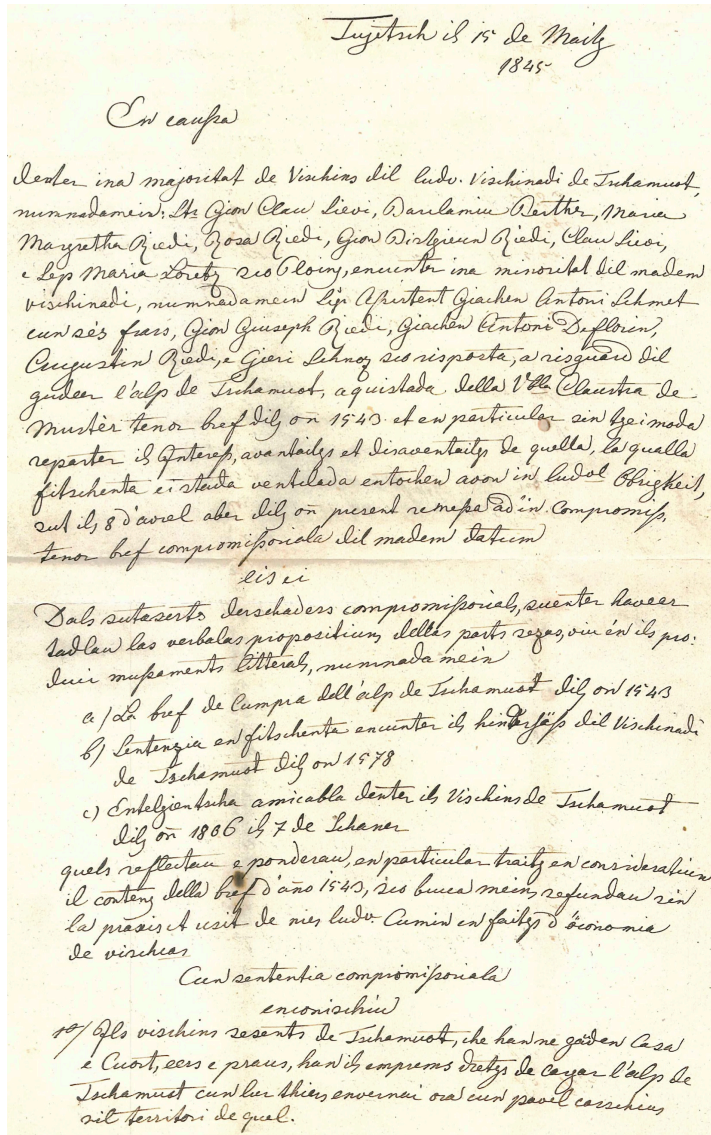 Tujetsch ils 15 de Maitz
1845
En caussa
denter ina majoritat de Vischins dil ludv. Vischinadi de Tschamuot,
numnadamein: Lts Gion Clau Lievi, Barclamiu Berther, Maria
Margretha Riedi, Rosa Riedi, Gion Distgieun Riedi, Clau Lievi,
e Sep Maria Loretz sco Cloin, encunter ina minoritat dil madem
vischinadi, numnadamein Sigr Giachen Antoni Schmet
cun sés frars, Gion Giuseph Riedi, Giachen Antoni Deflorin,
Augustin Riedi, e Gieri Schnoz sco risposta, a risguard dil
guder l'alp de Tschamuot, aquistada della Claustra de
Mustèr tenor bref dilg on 1543 et en particular sin tgei moda
reparter ils Interess, avantatgs et disavantatgs de quella, la qualla
fitschenta ei stada ventilada entochen avon in ludvl Obrigkeit,
sut ils 8 d'avrel aber dilg on present remessa ad in compromiss,
tenor bref compromissoriala dil madem datum
eis ei
Dals sutaserts derschaders compromissorials, suenter haveer
tadlau las verbalas propositiuns dellas parts sezas, viu én ils pro:
duci mussaments litterals, numnada mein
a) La bref de Cumpra dell'alp de Tschamuot dilg on 1543
b) Sentenzia en fitschenta encunter ils hindersäss dil Vischinadi
de Tschamuot dilg on 1578
c) Entelgientscha amicabla denter ils Vischins de Tschamuot
dilg on 1806 ils 7 de Schaner
quels reflectau e ponderau, en particular traitg en consideratiun
il conteng della bref d'año 1543, sco bucca meins refundau sin
la praxis et usit de nies ludv. Cumin en faitgs d'öconomia
de vischins
Cun sententia compromissoriala
enconischiu
1o/ Ils vischins sesents de Tschamuot, che han ne gäden Casa
e Cuort, eers e praus, han ils emprems dretgs de cargar l'alp de
Tschamuot cun lur thiers envernai ora cun pavel carschius
sil territori de quel.